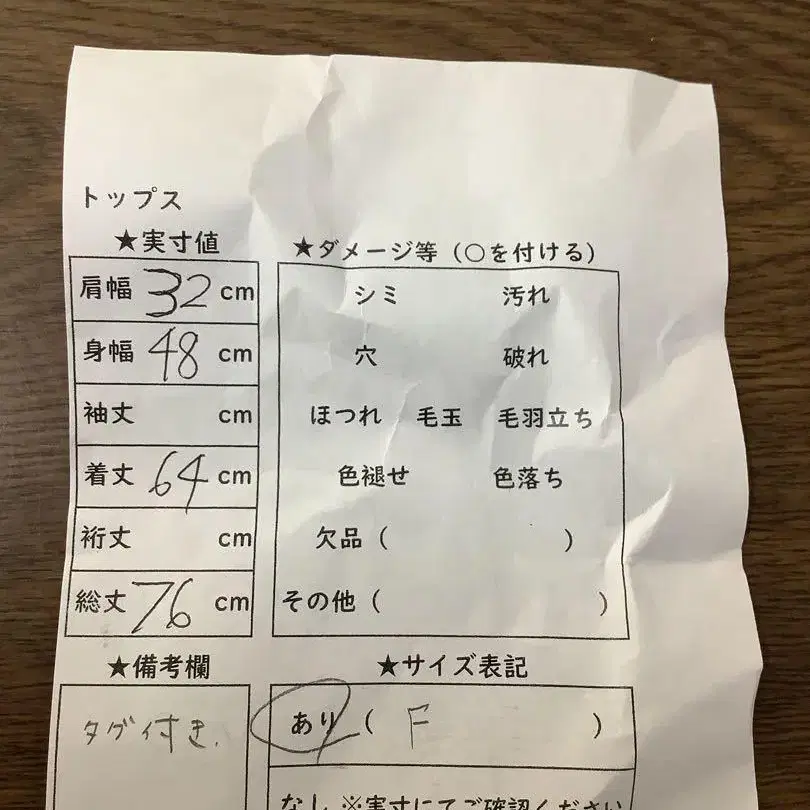 トップス
★実寸値
肩幅 32 cm
身幅 48 cm
袖丈 cm
着丈 64 cm
裄丈 cm
総丈 76 cm
★ダメージ等（○を付ける）
シミ 汚れ
穴 破れ
ほつれ 毛玉 毛羽立ち
色褪せ 色落ち
欠品（ ）
その他（ ）
★備考欄
タグ付き.
★サイズ表記
あり（ F ）
なし ※実寸にてご確認ください